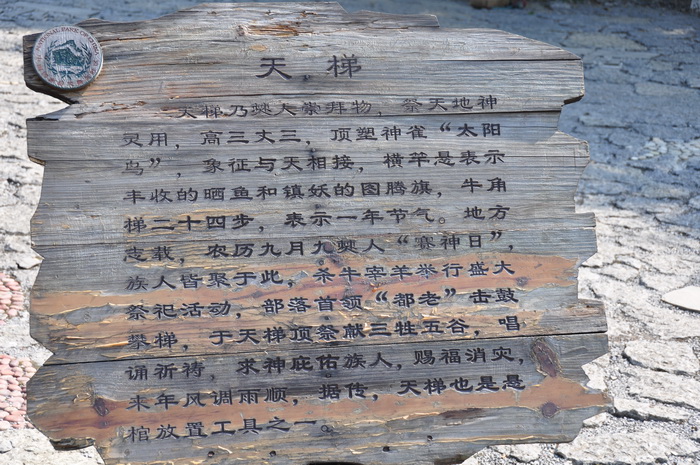 天 梯
天梯乃僰人崇拜物，祭天地神
灵用，高三丈三，顶塑神雀“太阳
鸟”，象征与天相接，横竿悬表示
丰收的晒鱼和镇妖的图腾旗，牛角
梯二十四步，表示一年节气。地方
志载，农历九月九僰人“赛神日”，
族人皆聚于此，杀牛宰羊举行盛大
祭祀活动，部落首领“都老”击鼓
攀梯，于天梯顶祭献三牲五谷，唱
诵祈祷，求神庇佑族人，赐福消灾，
来年风调雨顺，据传，天梯也是悬
棺放置工具之一。